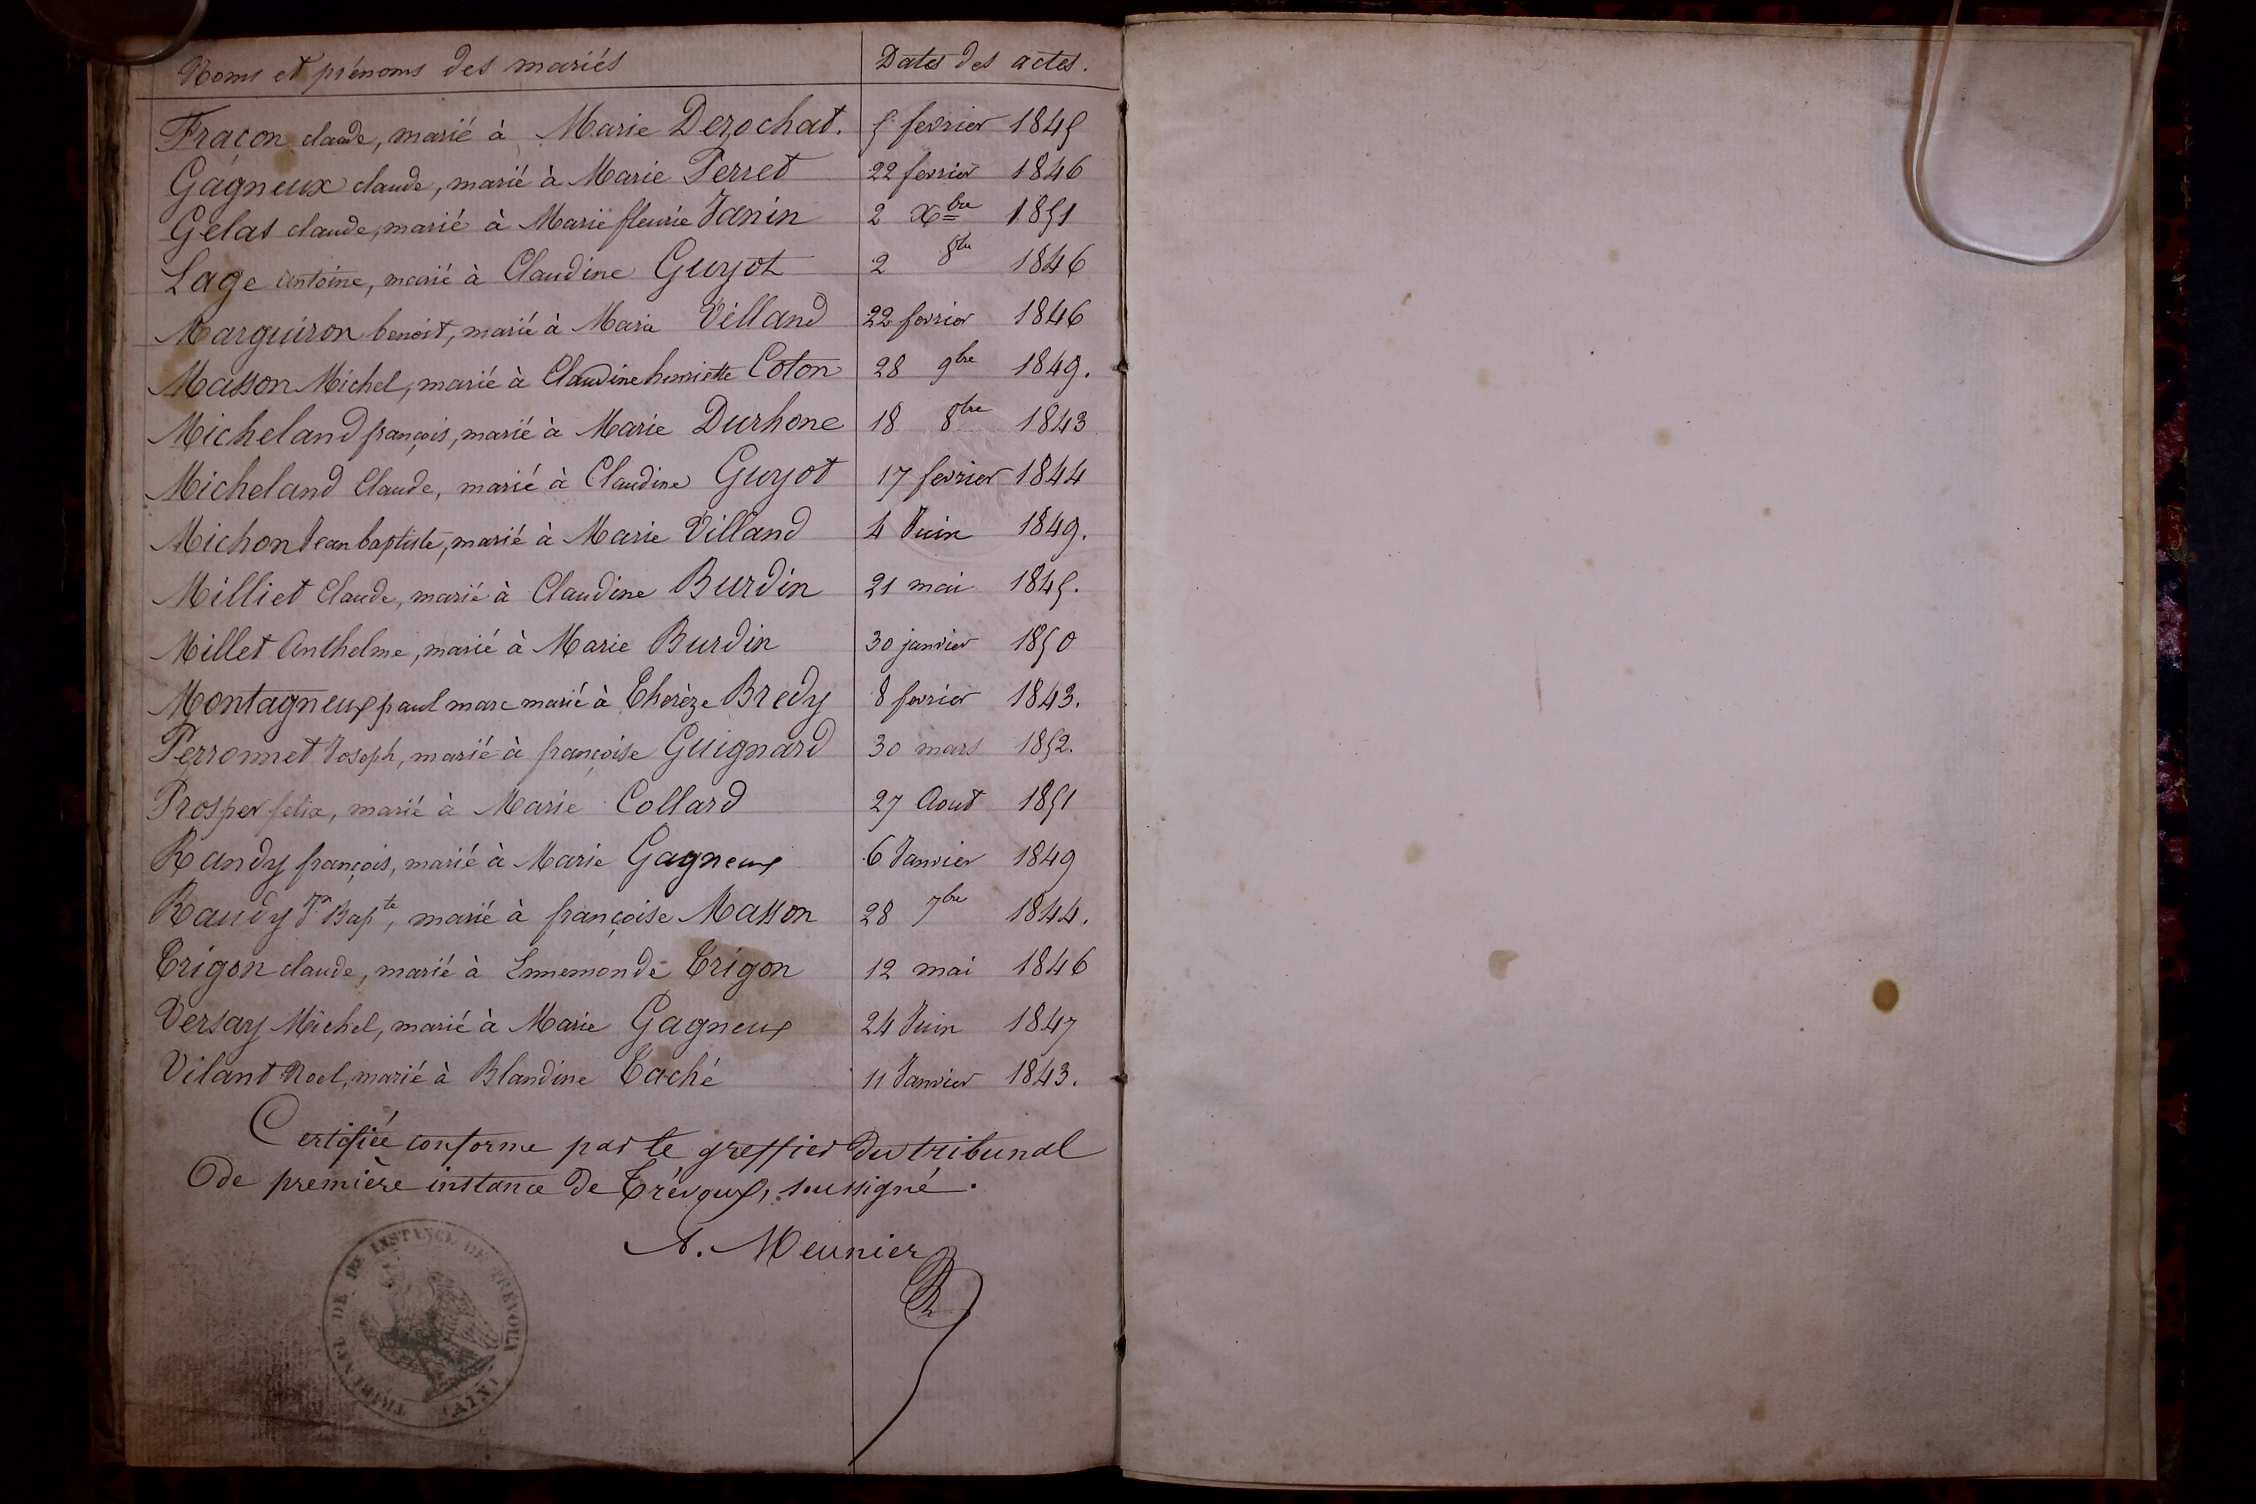 Noms et prénoms des mariés Dates des actes.
Fraçon claude, marié à Marie Dezochat. 5 fevrier 1845
Gagneux claude, marié à Marie Perret 22 fevrier 1846
Gelas claude, marié à Marie fleurie Janin 2 Xbre 1851
Lage antoine, marié à Claudine Guyot 2 8bre 1846
Marguiron benoit, marié à Marie Villand 22 fevrier 1846
Masson Michel, marié à Claudine henriette Coton 28 9bre 1849.
Micheland françois, marié à Marie Durhone 18 8bre 1843
Micheland Claude, marié à Claudine Guyot 17 fevrier 1844
Michon Jean baptiste, marié à Marie Villand 4 Juin 1849.
Milliet Claude, marié à Claudine Burdin 21 mai 1845.
Millet Anthelme, marié à Marie Burdin 30 janvier 1850
Montagneux paul marc marié à Thereze Bredy 8 fevrier 1843.
Perronnet Joseph, marié à françoise Guignard 30 mars 1852.
Prosper felix, marié à Marie Collard 27 Aout 1851
Randy françois, marié à Marie Gagneux 6 Janvier 1849
Randy Jn Bapte, marié à françoise Masson 28 7bre 1844.
Trigon claude, marié à Ennemonde Trigon 12 mai 1846
Versay Michel, marié à Marie Gagneux 24 Juin 1847
Vilant Noel, marié à Blandine Taché 11 Janvier 1843.
Certifiée conforme par le greffier du tribunal
de première instance de Trévoux, soussigné.
A. Meunier
TRIBUNAL DE 1re INSTANCE DE TREVOUX (AIN)